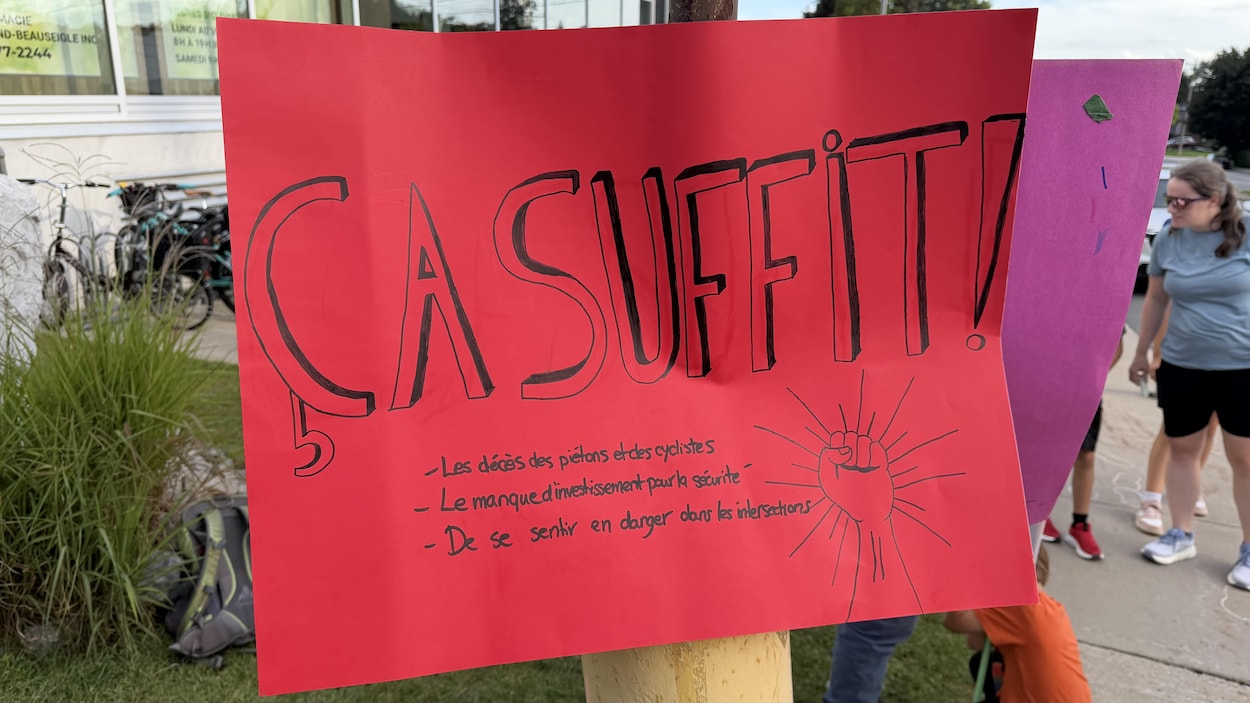 ND-BEAUSEIGLE INC
77-2244
LUNDI AU
SAMEDI
ÇA SUFFIT!
- Les décès des piétons et des cyclistes
- Le manque d'investissement pour la sécurité
- De se sentir en danger dans les intersections